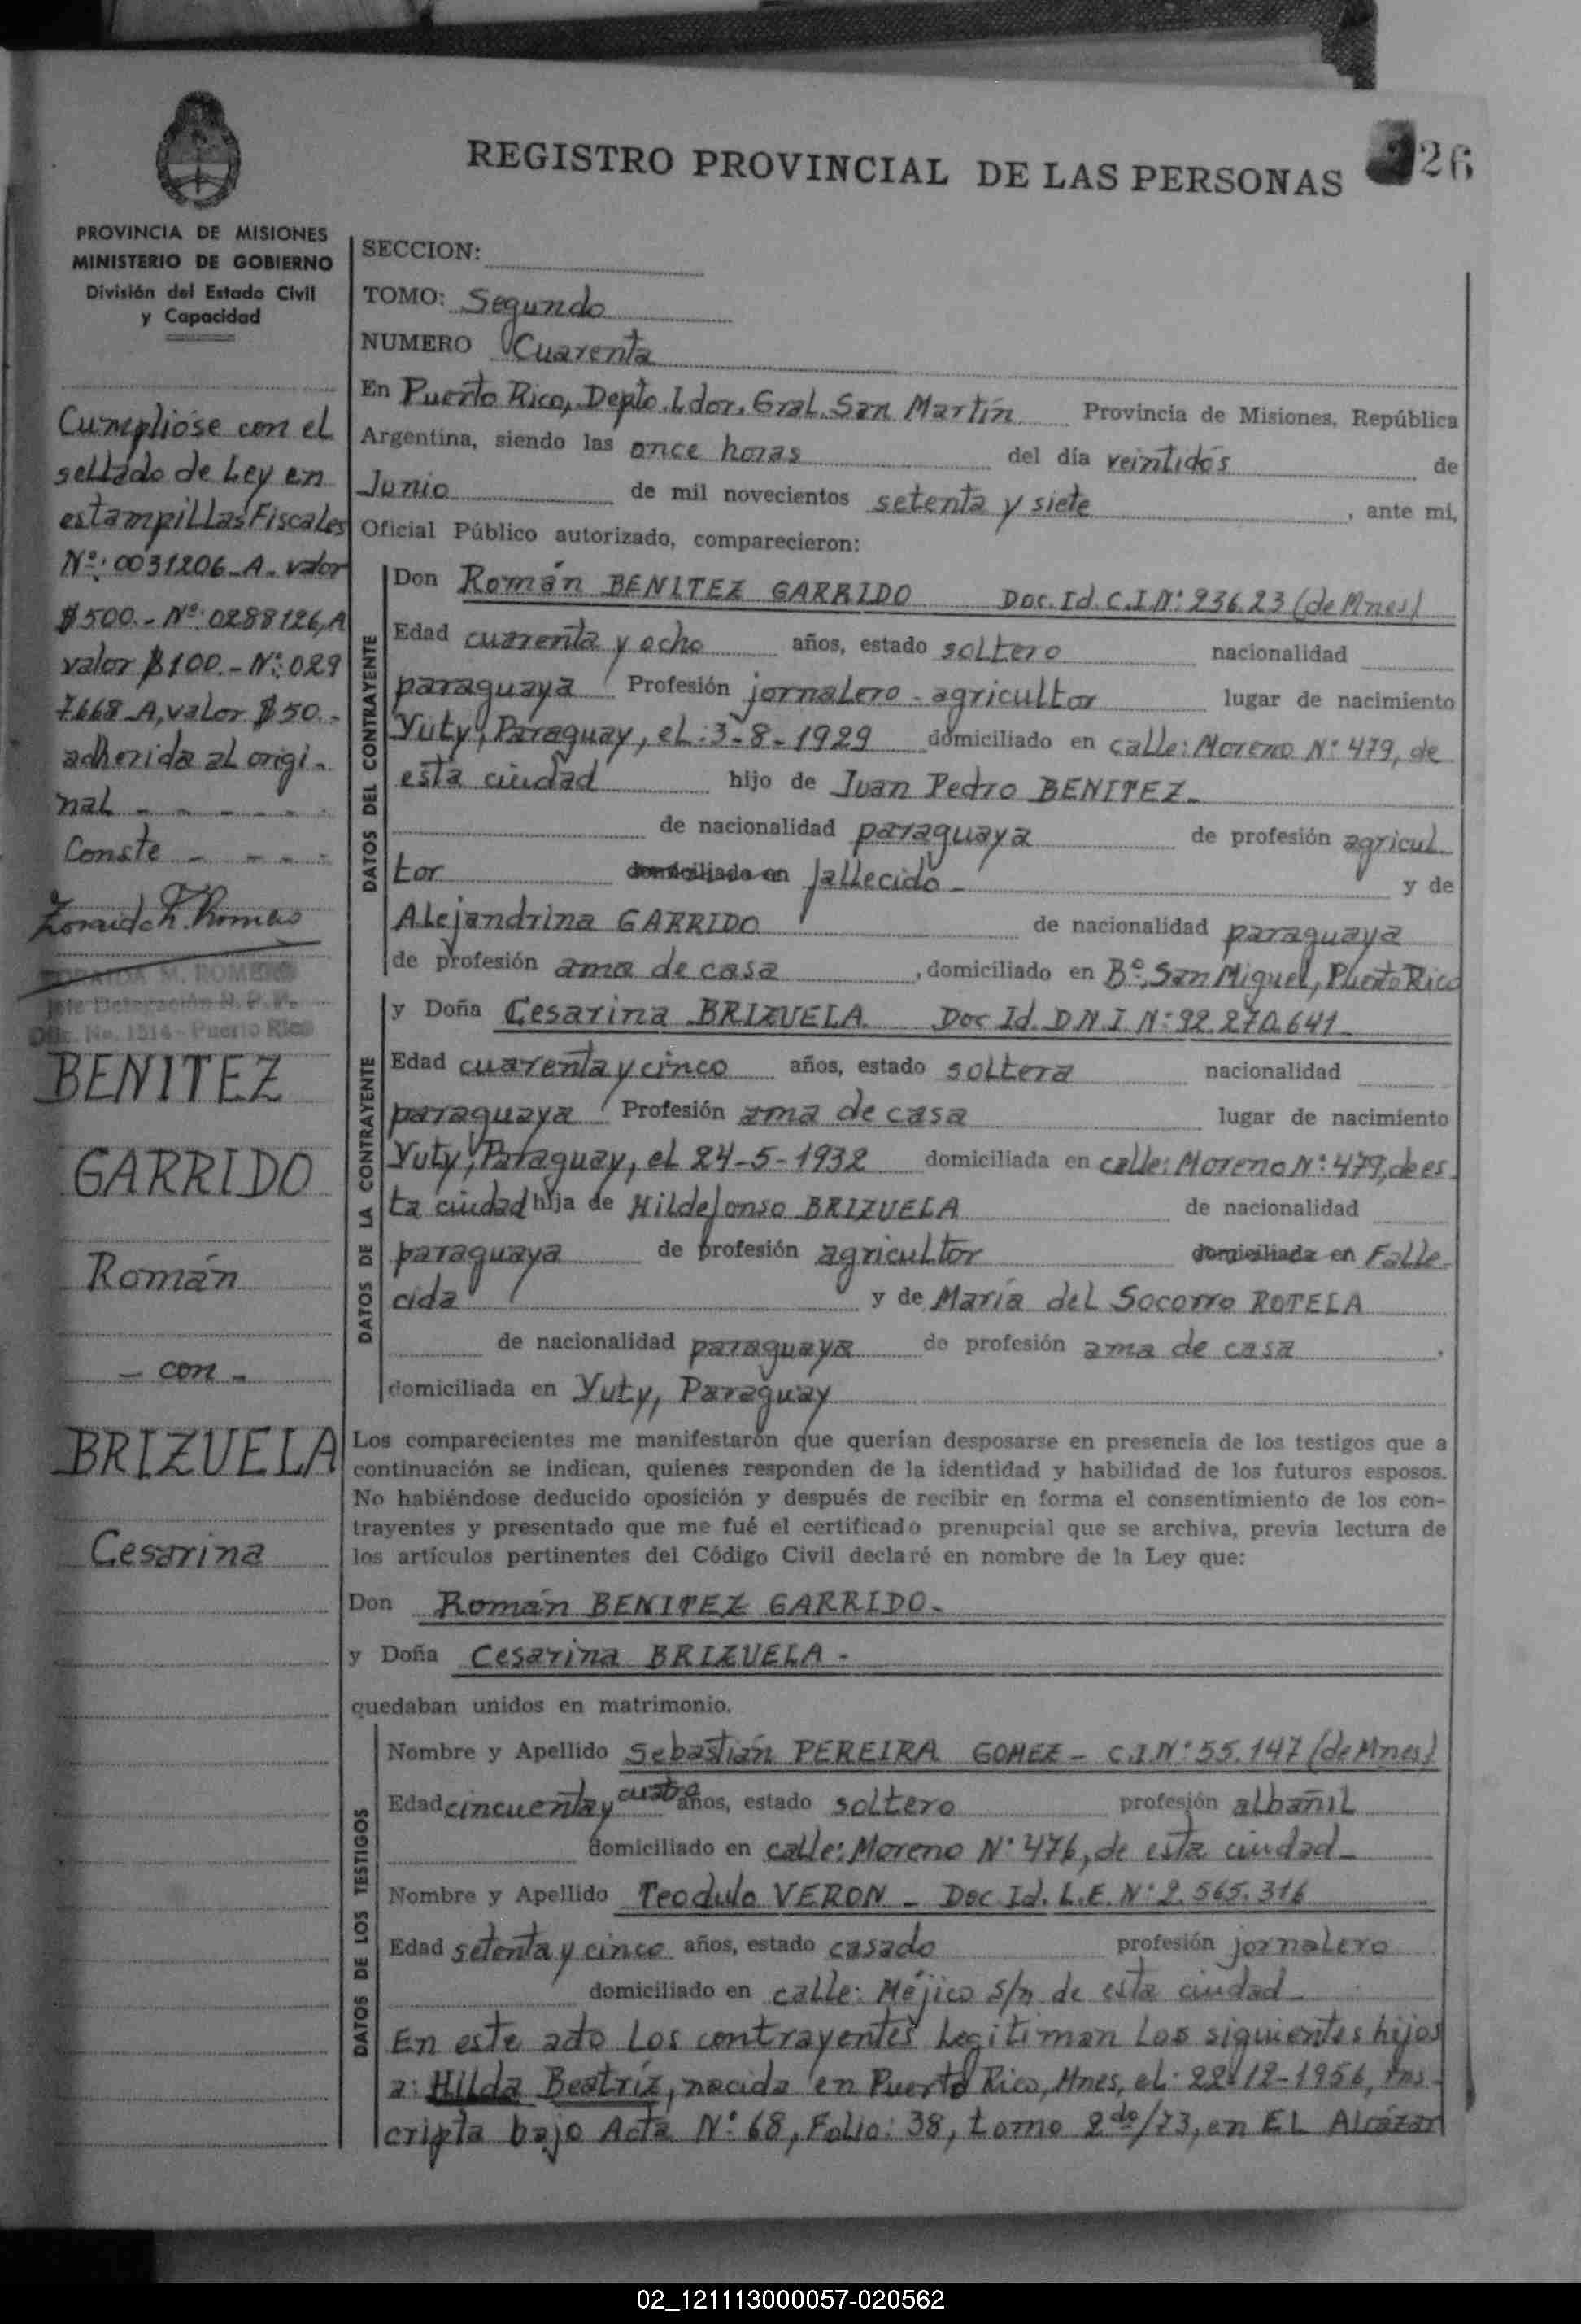 REGISTRO PROVINCIAL DE LAS PERSONAS
26
PROVINCIA DE MISIONES
MINISTERIO DE GOBIERNO
División del Estado Civil
y Capacidad
Cumplióse con el
sellado de Ley en
estampillas Fiscales
Nº: 0031206-A- valor
$500.- Nº: 0288126,A
valor $100.- Nº: 029
7668-A, valor $50.-
adherida al origi-
nal - - - - -
Conste - - - -
ZORAIDA M. ROMERO
Jefe Delegación R. P. P.
Ofic. No. 1514 - Puerto Rico
BENITEZ
GARRIDO
Román
- con -
BRIZUELA
Cesarina
SECCION:
TOMO: Segundo
NUMERO Cuarenta
En Puerto Rico, Depto. Ldor. Gral. San Martín Provincia de Misiones, República
Argentina, siendo las once horas del día veintidós de
Junio de mil novecientos setenta y siete, ante mi,
Oficial Público autorizado, comparecieron:
DATOS DEL CONTRAYENTE
Don Román BENITEZ GARRIDO Doc. Id. C.I Nº: 23623 (de Mnes)
Edad cuarenta y ocho años, estado soltero nacionalidad
paraguaya Profesión jornalero - agricultor lugar de nacimiento
Yuty, Paraguay, el: 3-8-1929 domiciliado en calle: Moreno Nº 479, de
esta ciudad hijo de Juan Pedro BENITEZ-
de nacionalidad paraguaya de profesión agricul
tor domiciliado en fallecido- y de
Alejandrina GARRIDO de nacionalidad paraguaya
de profesión ama de casa, domiciliado en Bº San Miguel, Puerto Rico
DATOS DE LA CONTRAYENTE
y Doña Cesarina BRIZUELA Doc Id. D.N.I. Nº: 92.270.641-
Edad cuarenta y cinco años, estado soltera nacionalidad
paraguaya Profesión ama de casa lugar de nacimiento
Yuty, Paraguay, el 24-5-1932 domiciliada en calle: Moreno Nº: 479, de es
ta ciudad hija de Hildefonso BRIZUELA de nacionalidad
paraguaya de profesión agricultor domiciliada en Falle
cida y de María del Socorro ROTELA
de nacionalidad paraguaya de profesión ama de casa,
domiciliada en Yuty, Paraguay
Los comparecientes me manifestarón que querían desposarse en presencia de los testigos que a
continuación se indican, quienes responden de la identidad y habilidad de los futuros esposos.
No habiéndose deducido oposición y después de recibir en forma el consentimiento de los con-
trayentes y presentado que me fué el certificado prenupcial que se archiva, previa lectura de
los artículos pertinentes del Código Civil declaré en nombre de la Ley que:
Don Román BENITEZ GARRIDO-
y Doña Cesarina BRIZUELA-
quedaban unidos en matrimonio.
DATOS DE LOS TESTIGOS
Nombre y Apellido Sebastián PEREIRA GOMEZ - C.I. Nº 55.147 (de Mnes)
Edad cincuenta y cuatro años, estado soltero profesión albañil
domiciliado en calle: Moreno Nº 476, de esta ciudad-
Nombre y Apellido Teodulo VERON - Doc Id. L.E. Nº: 2.565.316
Edad setenta y cinco años, estado casado profesión jornalero
domiciliado en calle: Méjico s/n de esta ciudad-
En este acto los contrayentes legitiman los siguientes hijos
a: Hilda Beatriz, nacida en Puerto Rico, Mnes, el: 22-12-1956, ins-
cripta bajo Acta Nº: 68, Folio: 38, tomo 2do/73, en EL Alcázar
02_121113000057-020562